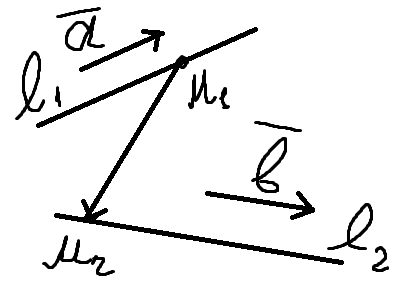 a̅
l₁
M₁
b̅
l₂
M₂